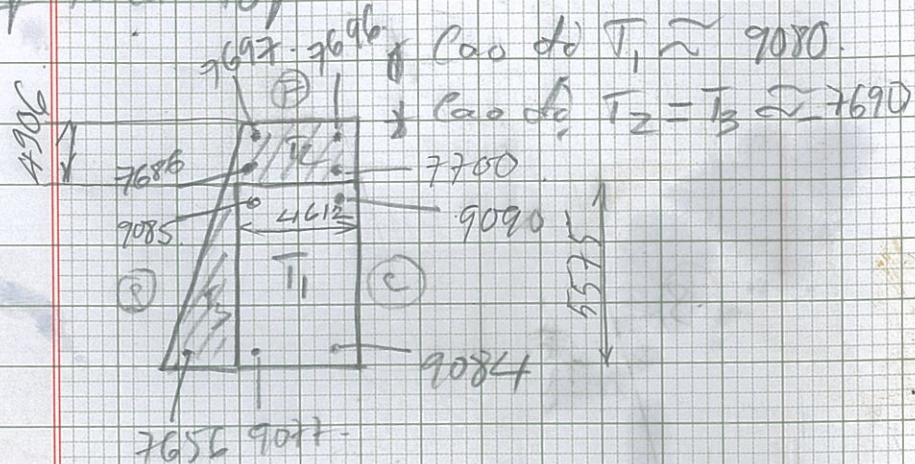 7697 7696 * Cao độ T₁ ≈ 9080.
* Cao độ T₂ = T₃ ≈ 7690
4906
T₂
7686 7700
9085 4612 9090
T₁ C
5575
9084
7656 9077